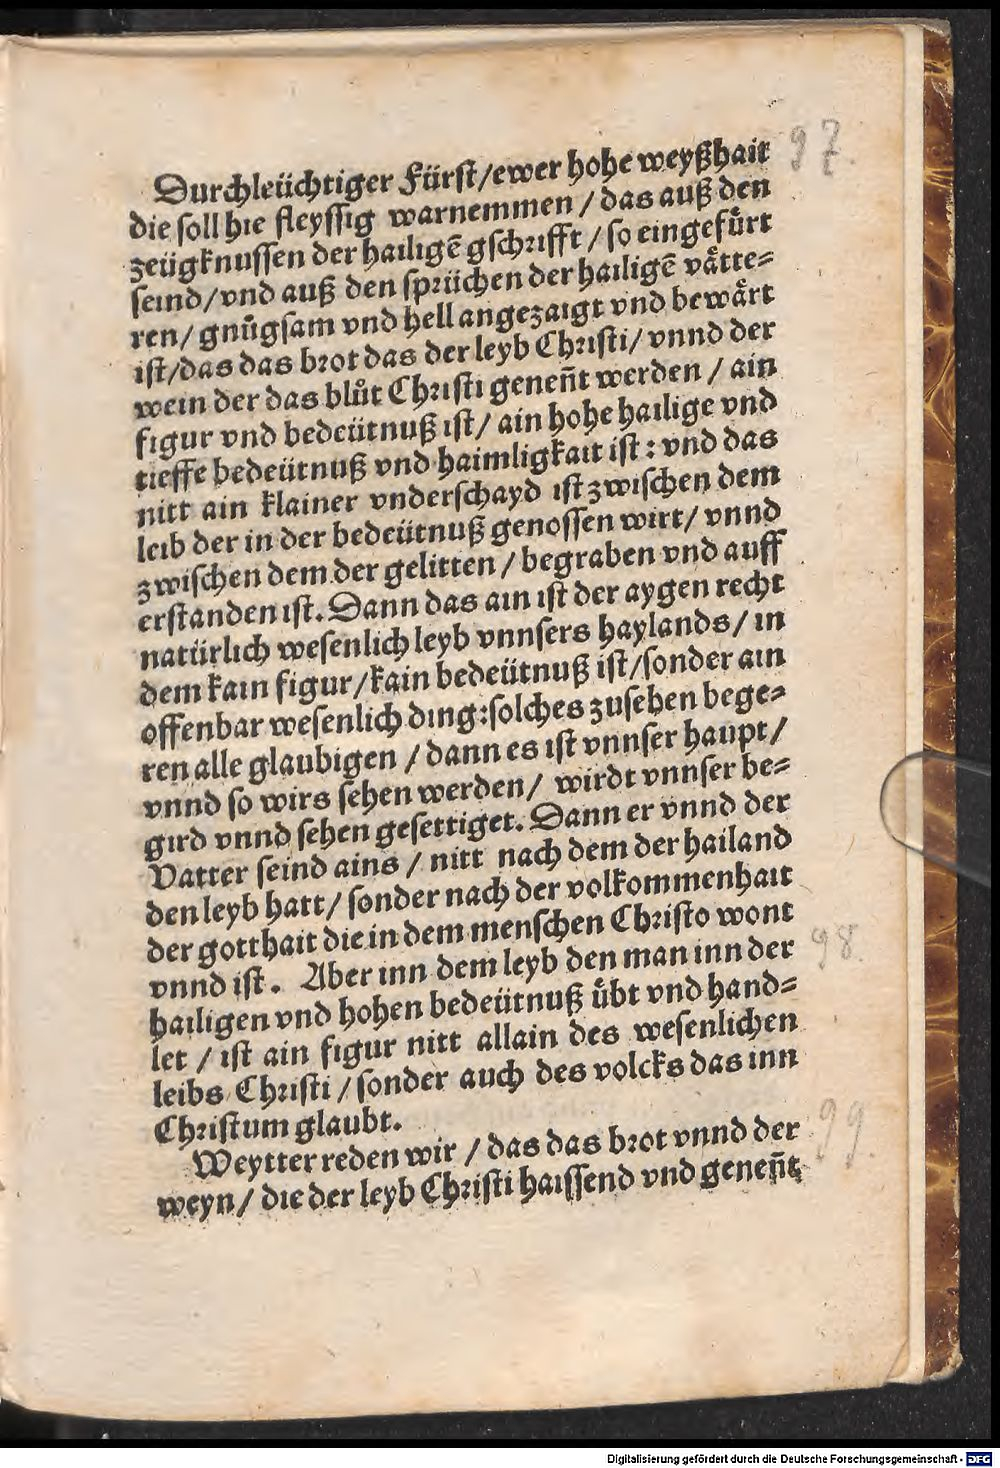 Durchleüchtiger Fürst/ewer hohe weyßhait 97.
die soll hie fleyssig warnemmen / das auß den
zeügknussen der hailigē gschrifft / so eingefůrt
seind/vnd auß den sprüchen der hailigē våtte⸗
ren/ gnůgsam vnd hell angezaigt vnd bewårt
ist/das das brot das der leyb Christi/ vnnd der
wein der das blůt Christi geneñt werden / ain
figur vnd bedeütnuß ist/ ain hohe hailige vnd
tieffe bedeütnuß vnd haimligkait ist: vnd das
nitt ain klainer vnderschayd ist zwischen dem
leib der in der bedeütnuß genossen wirt/ vnnd
zwischen dem der gelitten / begraben vnd auff
erstanden ist. Dann das ain ist der aygen recht
natürlich wesenlich leyb vnnsers haylands/ in
dem kain figur/kain bedeütnuß ist/sonder ain
offenbar wesenlich ding:solches zusehen bege⸗
ren alle glaubigen / dann es ist vnnser haupt/
vnnd so wirs sehen werden/ wirdt vnnser be⸗
gird vnnd sehen gesettiget. Dann er vnnd der
Vatter seind ains / nitt nach dem der hailand
den leyb hatt/ sonder nach der volkommenhait
der gotthait die in dem menschen Christo wont
vnnd ist. Aber inn dem leyb den man inn der 98.
hailigen vnd hohen bedeütnuß übt vnd hand⸗
let / ist ain figur nitt allain des wesenlichen
leibs Christi / sonder auch des volcks das inn
Christum glaubt.
Weytter reden wir / das das brot vnnd der 99.
weyn/ die der leyb Christi haissend vnd geneñt
Digitalisierung gefördert durch die Deutsche Forschungsgemeinschaft - DFG